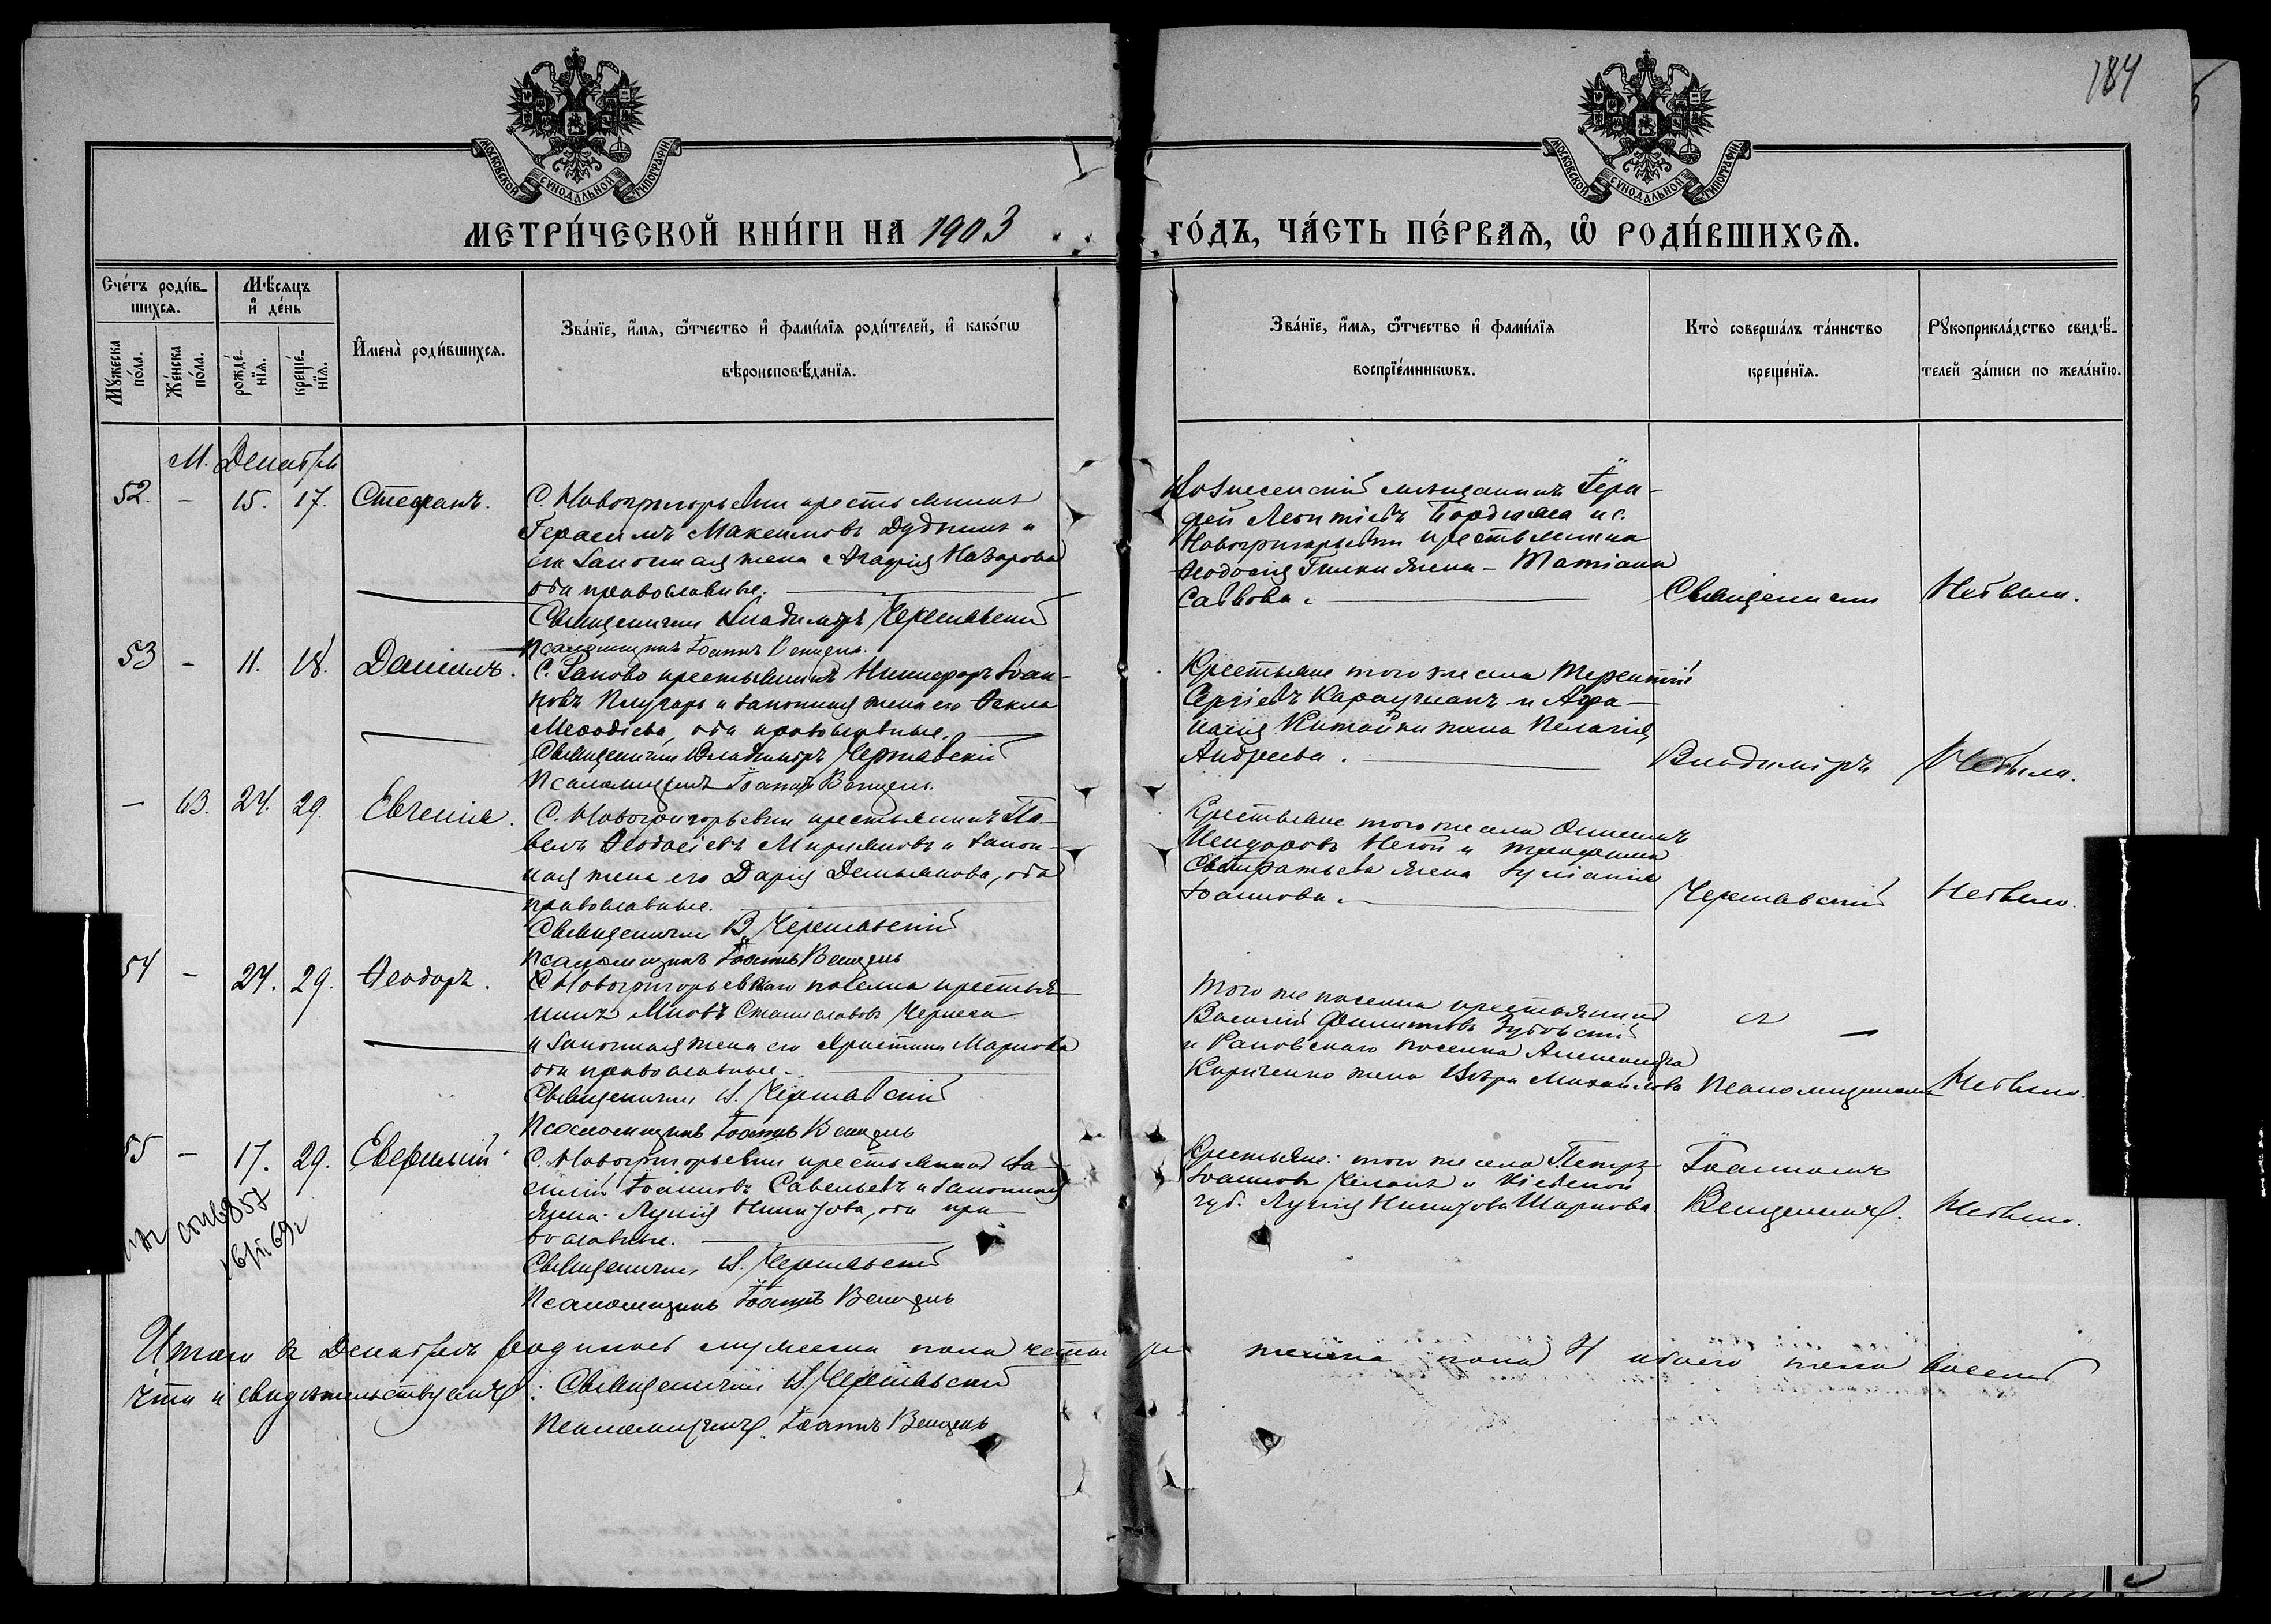 184
МОСКОВСКОЙ СѴНОДАЛЬНОЙ ТИПОГРАФІИ
МОСКОВСКОЙ СѴНОДАЛЬНОЙ ТИПОГРАФІИ
МЕТРИ́ЧЕСКОЙ КНИ́ГИ НА 1903
ГО́ДЪ, ЧА́СТЬ ПЕ́РВАѦ, Ѡ РОДИ́ВШИХСѦ.
Сче́тъ роди́в-
шихсѧ.
Мѣ́сяцъ
и҆ де́нь
Мꙋ́жеска
по́ла.
Же́нска
по́ла.
рожде́-
нїѧ.
креще́-
нїѧ.
И҆мена̀ роди́вшихсѧ.
Зва́нїе, и҆́мѧ, ѻ҆́тчество и҆ фами́лїѧ роди́телей, и҆ како́гѡ
вѣроисповѣ́данїѧ.
Зва́нїе, и҆́мѧ, ѻ҆́тчество и҆ фами́лїѧ
воспрїе́мникѡвъ.
Кто̀ соверша́лъ та́инство
креще́нїѧ.
Рꙋкоприкла́дство свидѣ́-
телей за́писи по жела́нїю.
М. Декабрь
52. - 15. 17. Стефанъ.
С. Новогригорьевки крестьянинъ
Герасимъ Максимовъ Дудникъ и
его законная жена Агафія Назарова
оба православные.
Священникъ Владиміръ Чернявскій
Псаломщикъ Іоаннъ Венцель.
Вознесенскій мѣщанинъ
Леонтіевъ и с.
Новогригорьевки крестьянина
Ѳеодосія жена - Татіана
Саввова.
Священникъ
Не было.
53 - 11. 18. Даніилъ.
С. Раково крестьянинъ Никифоръ Іоан-
новъ Плугарь и законная жена его Ѳекла
Меѳодіева, оба православные.
Священникъ Владиміръ Чернявскій
Псаломщикъ Іоаннъ Венцель.
Крестьяне того же села Терентій
Сергіевъ и Афа-
насія Китайки жена Пелагія
Андреева.
Владиміръ
Не было.
- 43. 24. 29. Евгенія.
С. Новогригорьевки крестьянинъ Па-
велъ Ѳеодосіевъ и закон-
ная жена его Дарія Демьянова, оба
православные.
Священникъ В. Чернявскій
Псаломщикъ Іоаннъ Венцель
Крестьяне того же села
и
жена Іуліанія
Іоаннова.
Чернявскій
Не было.
54 - 24. 29. Ѳеодоръ.
С. Новогригорьевскаго поселка крестья-
нинъ Станиславовъ
и законная жена его Христина Маркова
оба православные.
Священникъ В. Чернявскій
Псаломщикъ Іоаннъ Венцель
Того же поселка крестьянинъ
Василій Филипповъ Зубовскій
и Раковскаго поселка Александра
Кириченко жена Вѣра Михайлова
съ -
Псаломщикомъ
Не было.
55 - 17. 29. Евфимій.
С. Новогригорьевки крестьянинъ Ва-
силій Іоанновъ Савельевъ и законная
жена Лукія оба пра-
вославные.
Священникъ В. Чернявскій
Псаломщикъ Іоаннъ Венцель
Крестьяне: того же села Петръ
Іоанновъ и Кіевской
губ. Лукія
Іоанномъ
Венцелемъ.
Не было.
Итого въ Декабрѣ родилось мужеска пола четыре женска пола 4 обоего пола восемь
Что и свидѣтельствуемъ: Священникъ В. Чернявскій
Псаломщикъ Іоаннъ Венцель